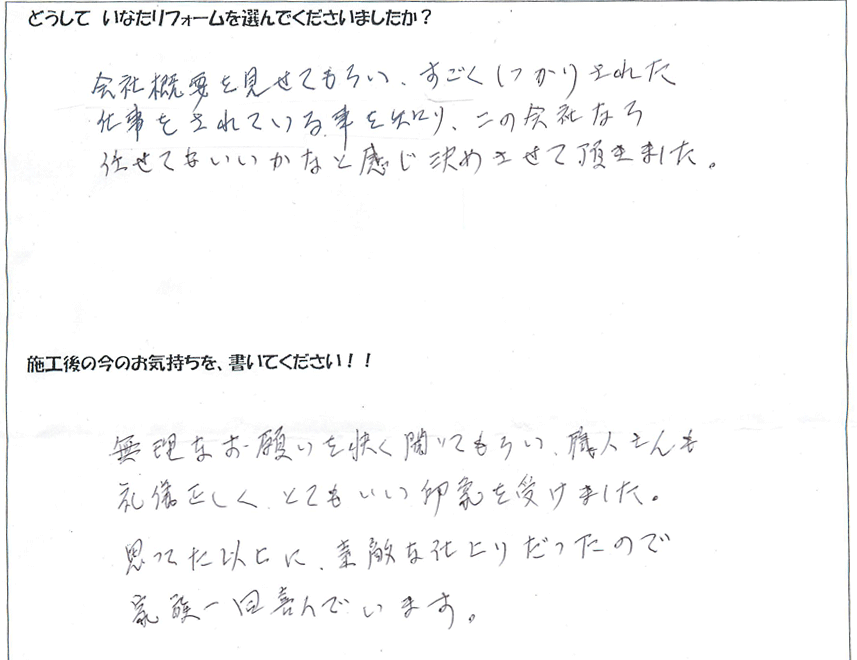 どうして いなたリフォームを選んでくださいましたか？
会社概要を見せてもらい、すごくしっかりされた
仕事をされている事を知り、この会社なら
任せてないいかなと感じ決めさせて頂きました。
施工後の今のお気持ちを、書いてください！！
無理なお願いを快く聞いてもらい、職人さんも
礼儀正しく、とてもいい印象を受けました。
思ってた以上に、素敵な仕上りだったので
家族一同喜んでいます。